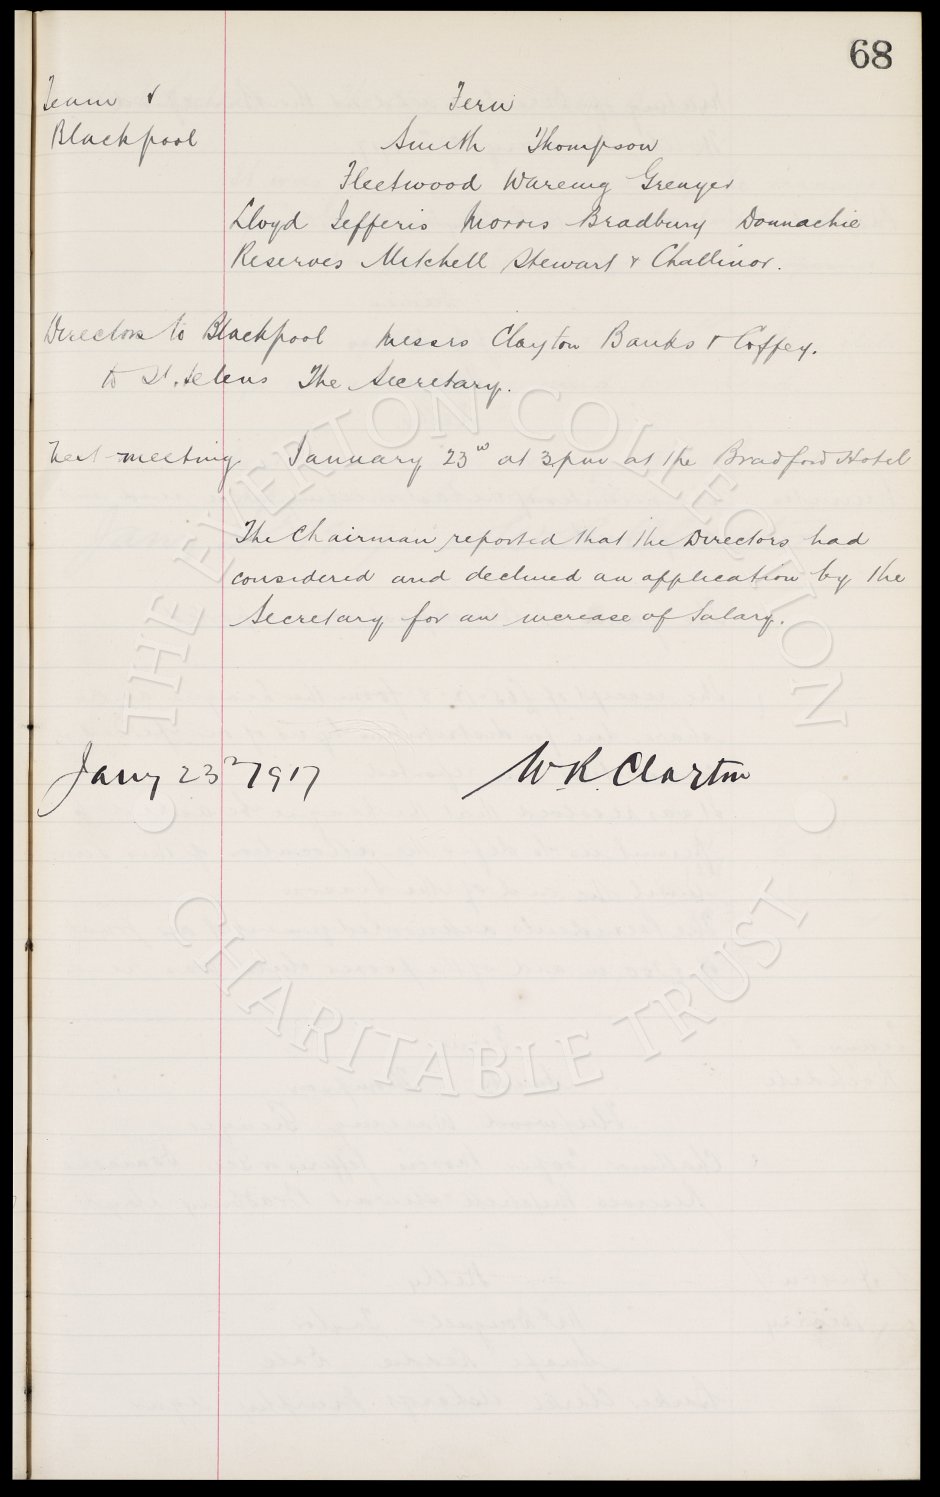 68
Team v Fern
Blackpool Smith Thompson
Fleetwood Wareing Grenyer
Lloyd Jefferis Morris Bradbury Donnachie
Reserves Mitchell Stewart & Challinor.
Directors to Blackpool Messrs Clayton Banks & Coffey.
to St. Helens The Secretary.
Next meeting January 23rd at 3pm at the Bradford Hotel
The Chairman reported that the Directors had
considered and declined an application by the
Secretary for an increase of Salary.
Jany 23rd 1917 W.R. Clayton
THE EVERTON COLLECTION
CHARITABLE TRUST